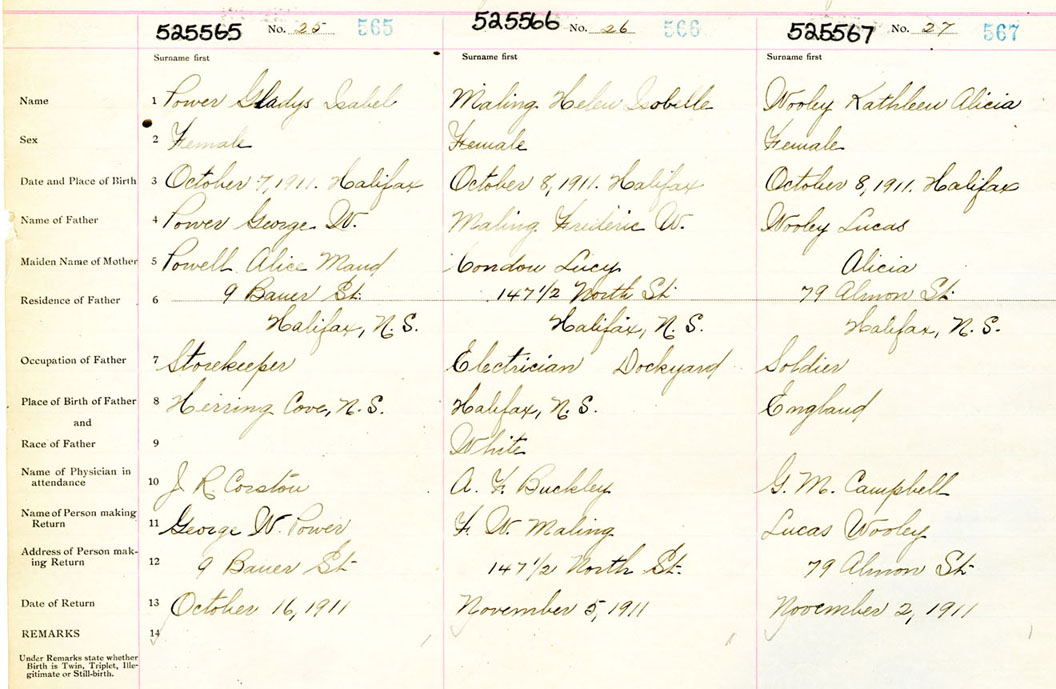 525565 No. 25 565 525566 No. 26 566 525567 No. 27 567
Surname first Surname first Surname first
Name 1 Power Gladys Isabel Maling Helen Isobelle Wooley Kathleen Alicia
Sex 2 Female Female Female
Date and Place of Birth 3 October 7, 1911. Halifax October 8, 1911. Halifax October 8, 1911. Halifax
Name of Father 4 Power George W. Maling Frederic W. Wooley Lucas
Maiden Name of Mother 5 Powell Alice Maud Condow Lucy Alicia
Residence of Father 6 9 Bauer St. 147 1/2 North St. 79 Almon St.
Halifax, N.S. Halifax, N.S. Halifax, N.S.
Occupation of Father 7 Storekeeper Electrician Dockyard Soldier
Place of Birth of Father 8 Herring Cove, N.S. Halifax, N.S. England
and
Race of Father 9 White
Name of Physician in
attendance 10 J R. Corston A. F. Buckley G. M. Campbell
Name of Person making
Return 11 George W. Power F. W. Maling Lucas Wooley
Address of Person mak-
ing Return 12 9 Bauer St. 147 1/2 North St. 79 Almon St.
Date of Return 13 October 16, 1911 November 5, 1911 November 2, 1911
REMARKS 14
Under Remarks state whether
Birth is Twin, Triplet, Ille-
gitimate or Still-birth.